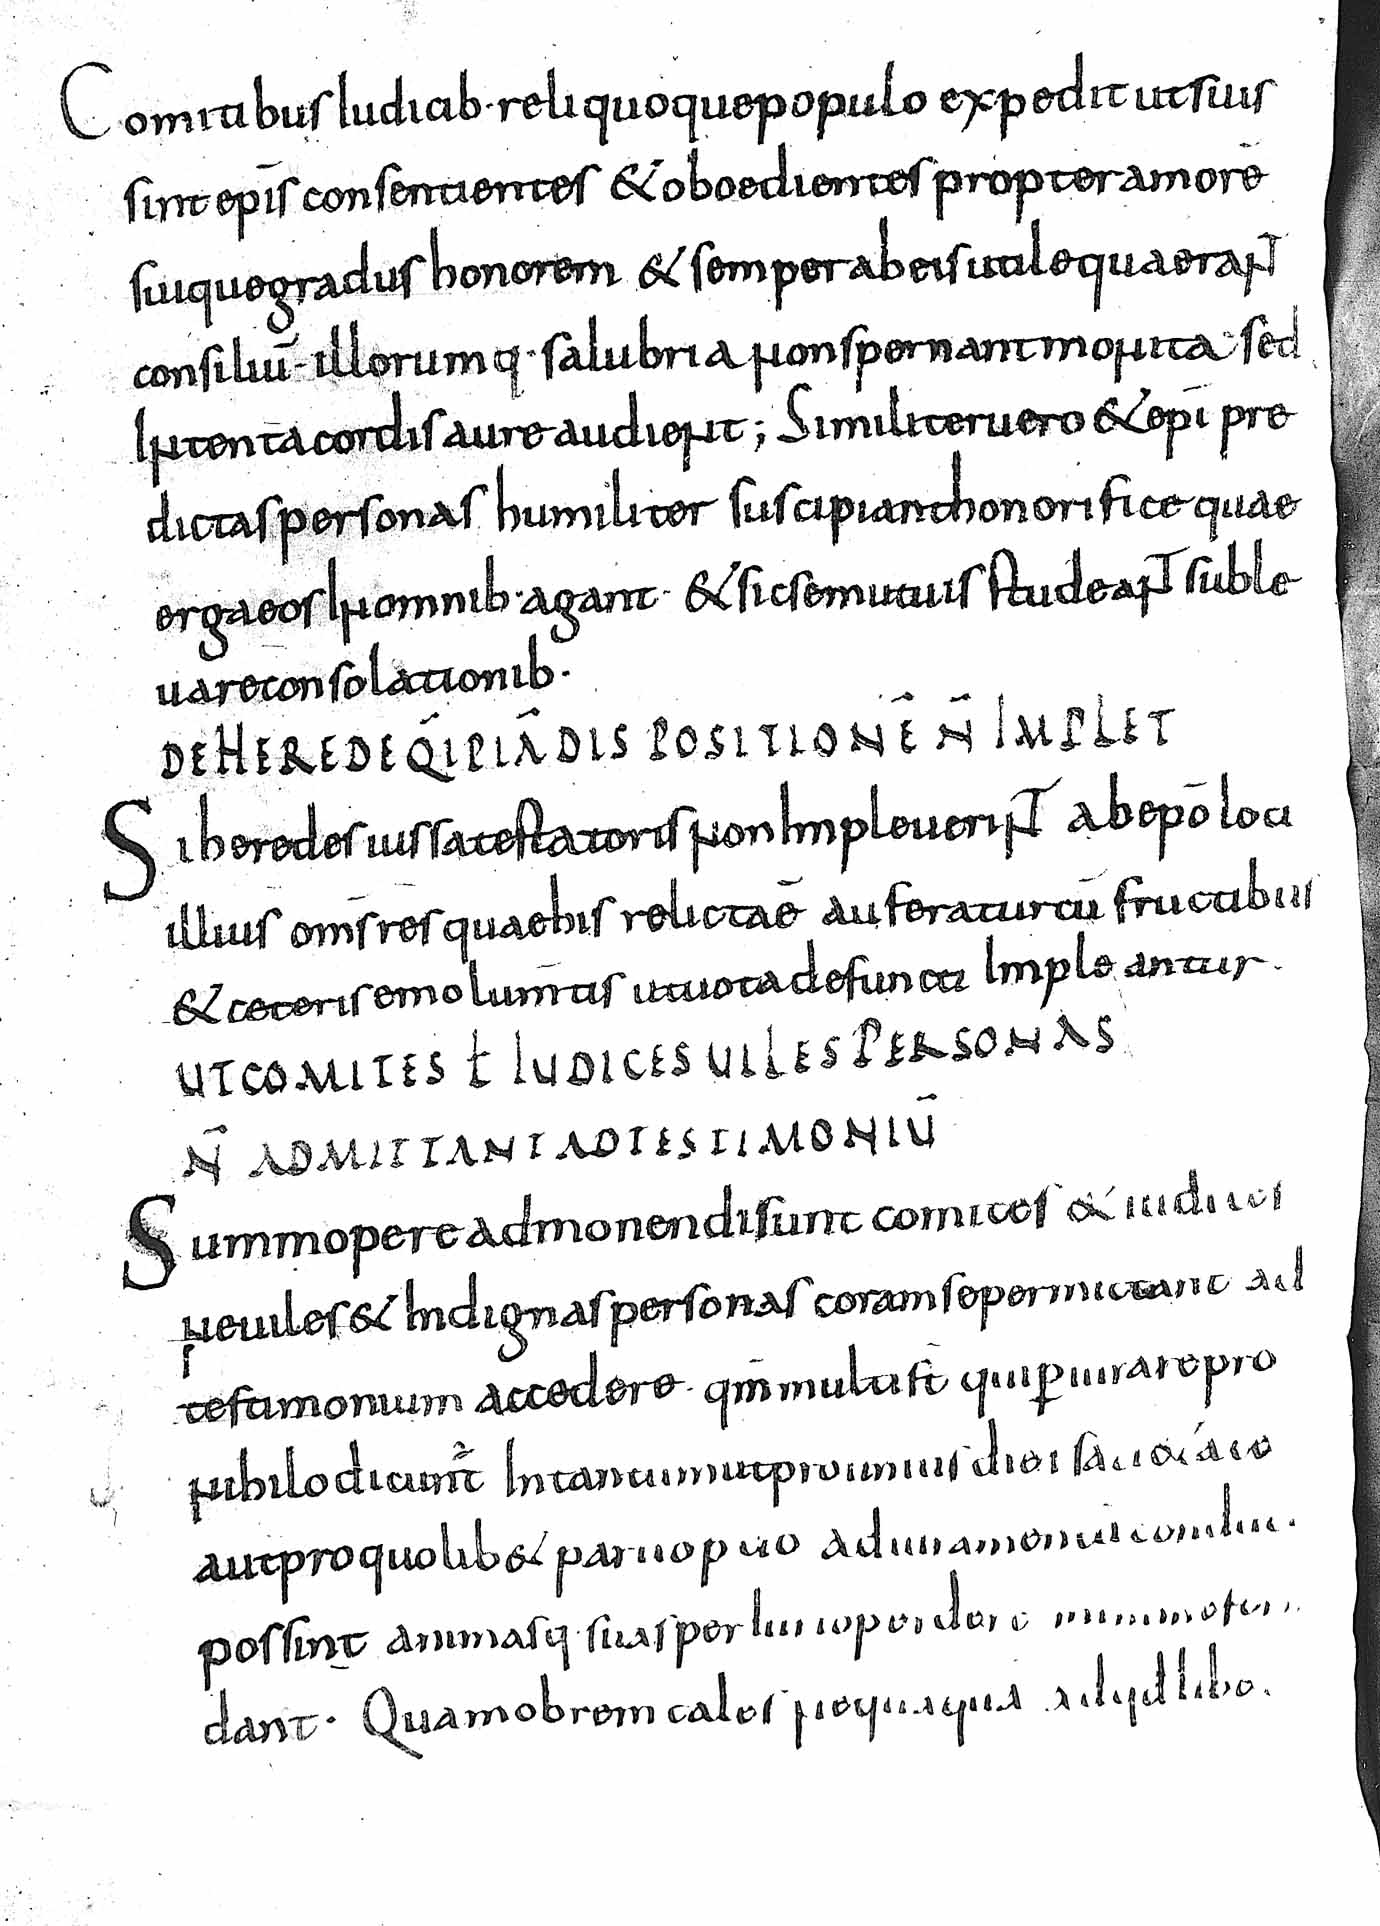 Comitibus ludicib· reliquoque populo expedit ut suis
sint ep̄is consentientes & oboedientes propter amorē
suique gradus honorem & semper ab eis utile quaerant
consiliū· illorumq· salubria non spernant monita sed
Intenta cordis aure audient; Similiter uero & ep̄i pre
dictas personas humiliter suscipiant honorifice quae
erga eos In omnib· agant· & sic se mutuis studeant suble
uare consolationib·
DE HEREDE Q̄I PIĀ DISPOSITIONĒ N̄ IMPLET
Si heredes iussa testatoris non Impleuerint ab ep̄o loci
illius om̄s res quae his relictae ē auferatur cū fructibus
& ceteris emolum̄tis ut uota defuncti Impleantur·
UT COMITES ł IUDICES UILES PERSONAS
N̄ ADMITTANT AD TESTIMONIŪ
Summopere admonendi sunt comites & iudices
ne uiles & Indignas personas coram se permittant ad
testimonium accedere· qm̄ multi st̄ qui ꝑiurare pro
nihilo dicunt̄ In tantum ut pro unius diei
aut pro quolib& paruo p
possint animasq· suas per perdere
dant· Quamobrem tales nequaquā